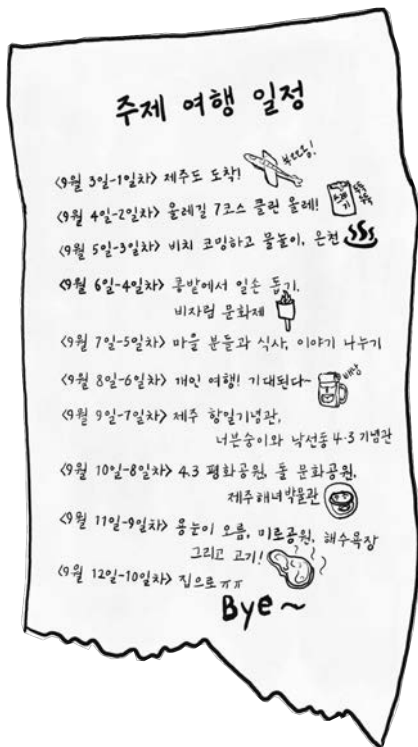 주제 여행 일정
<9월 3일-1일차> 제주도 도착!
부르릉!
<9월 4일-2일차> 올레길 7코스 클린 올레!
쓰레기
<9월 5일-3일차> 비치 코밍하고 물놀이, 온천
<9월 6일-4일차> 콩밭에서 일손 돕기,
비자림 문화제
<9월 7일-5일차> 마을 분들과 식사, 이야기 나누기
<9월 8일-6일차> 개인 여행! 기대된다~
<9월 9일-7일차> 제주 항일기념관,
너븐숭이와 낙선동 4·3 기념관
<9월 10일-8일차> 4.3 평화공원, 돌 문화공원,
제주해녀박물관
<9월 11일-9일차> 용눈이 오름, 미로공원, 해수욕장
그리고 고기!
<9월 12일-10일차> 집으로 ㅠㅠ
Bye~